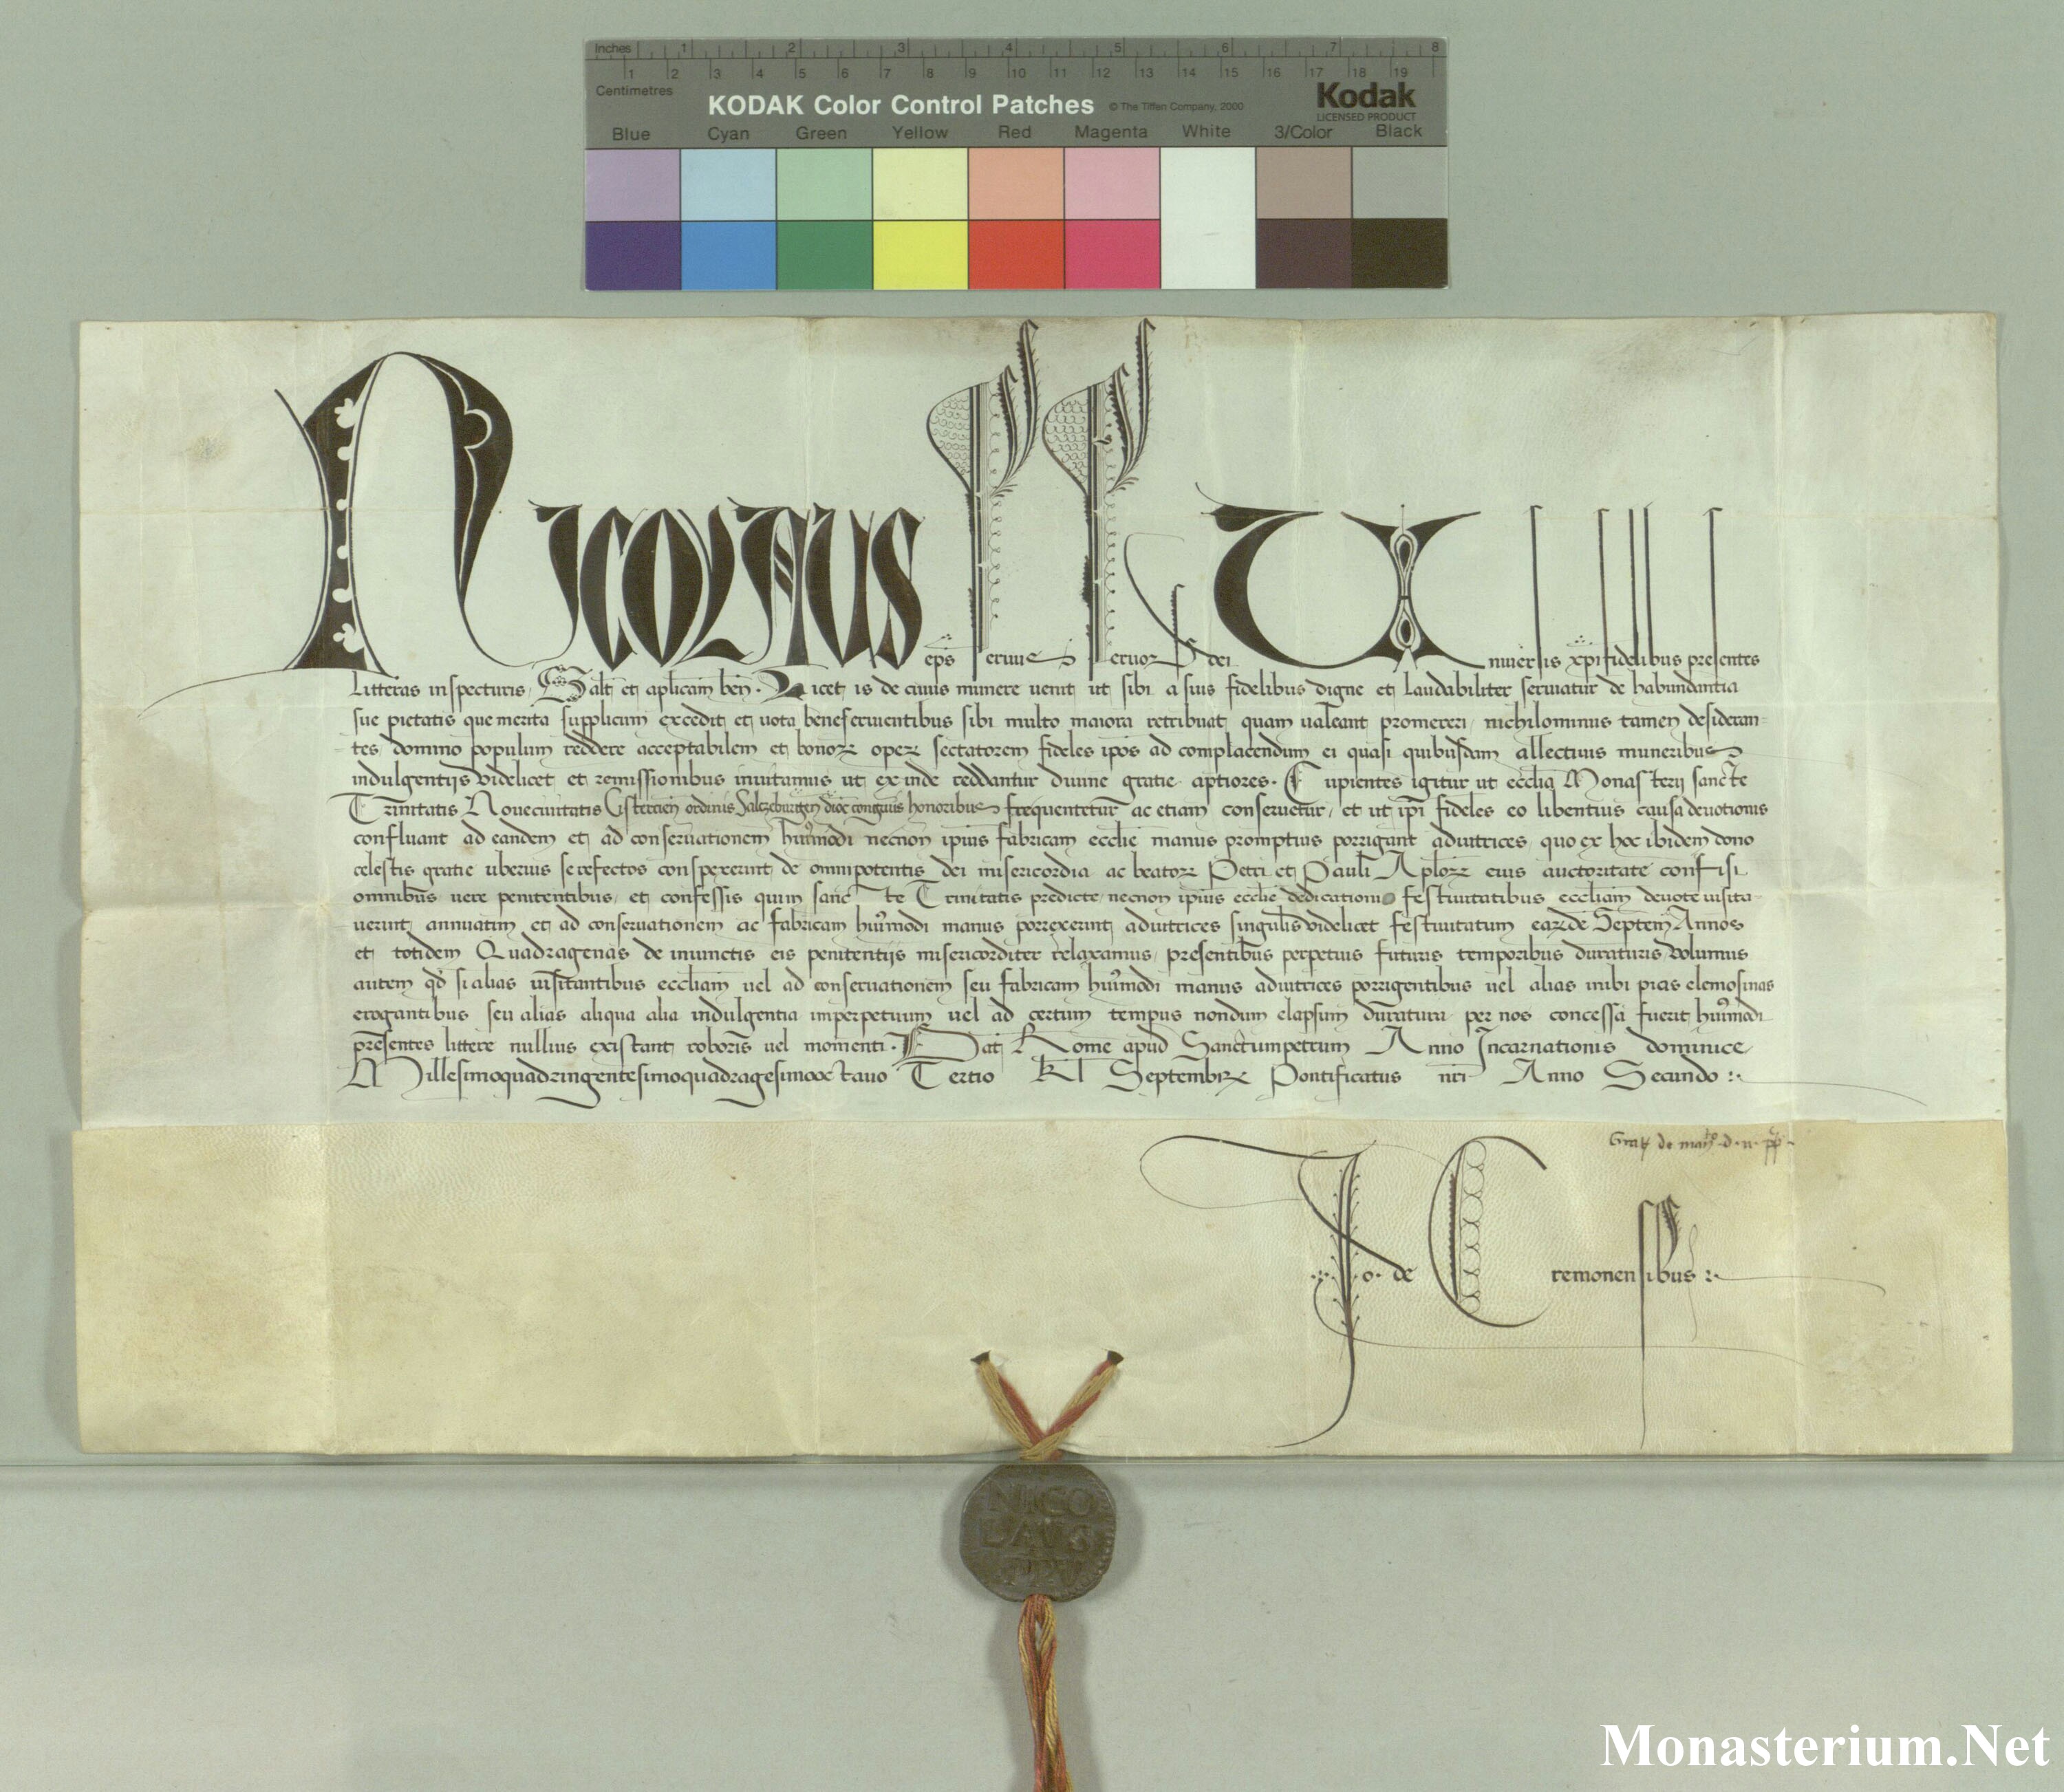 Inches 1 2 3 4 5 6 7 8
1 2 3 4 5 6 7 8 9 10 11 12 13 14 15 16 17 18 19
Centimetres
KODAK Color Control Patches © The Tiffen Company, 2000 Kodak
LICENSED PRODUCT
Blue Cyan Green Yellow Red Magenta White 3/Color Black
NICOLAUS eps seruus seruoꝝ dei Uniuersis xpifidelibus presentes
litteras inspecturis, Saltꝫ et aplicam ben. Licet is de cuius munere uenit ut sibi a suis fidelibus digne et laudabiliter seruiatur de habundantia
sue pietatis que merita supplicum excedit et uota beneseruientibus sibi multo maiora retribuat quam ualeant promereri, nichilominus tamen desideran-
tes domino populum reddere acceptabilem et bonoꝝ opeꝝ sectatorem fideles ipos ad complacendum ei quasi quibusdam allectiuis muneribus
indulgentijs videlicet et remissionibus inuitamus ut exinde reddantur diuine gratie aptiores. Cupientes igitur ut ecclia Monasterij sancte
Trinitatis Nouecuitatis Cistercien ordinis Salczeburgen dioc congruis honoribus frequentetur ac etiam conseruetur, et ut ipi fideles eo libentius causa deuotionis
confluant ad eandem et ad conseruationem huiꝰmodi necnon ipius fabricam ecclie manus promptius porrigant adiutrices, quo ex hoc ibidem dono
celestis gratie uberius se refectos conspexerint de omnipotentis dei misericordia ac beatoꝝ Petri et Pauli Aploꝝ eius auctoritate confisi
omnibus uere penitentibus, et confessis qui in sancte Trinitatis predicte, necnon ipius ecclie dedicationis festiuitatibus eccliam deuote uisita-
uerint annuatim et ad conseruationem ac fabricam huiꝰmodi manus porrexerint adiutrices singulis videlicet festiuitatum eaꝝde Septem Annos
et totidem Quadragenas de iniunctis eis penitentijs misericorditer relaxamus, presentibus perpetuis futuris temporibus duraturis. Volumus
autem qd si alias uisitantibus eccliam uel ad conseruationem seu fabricam huiꝰmodi manus adiutrices porrigentibus uel alias inibi pias elemosinas
erogantibus seu alias aliqua alia indulgentia imperpetuum uel ad certum tempus nondum elapsum duratura per nos concessa fuerit huiꝰmodi
presentes littere nullius existant roboris uel momenti. Datꝫ Rome apud Sanctumpetrum Anno Incarnationis dominice
Millesimoquadringentesimoquadragesimooctauo Tertio kl Septembrꝝ Pontificatus nri Anno Secundo :.
de d. n. pp
Jo. de Cremonensibus :.
NICO
LAVS
PP V
Monasterium.Net